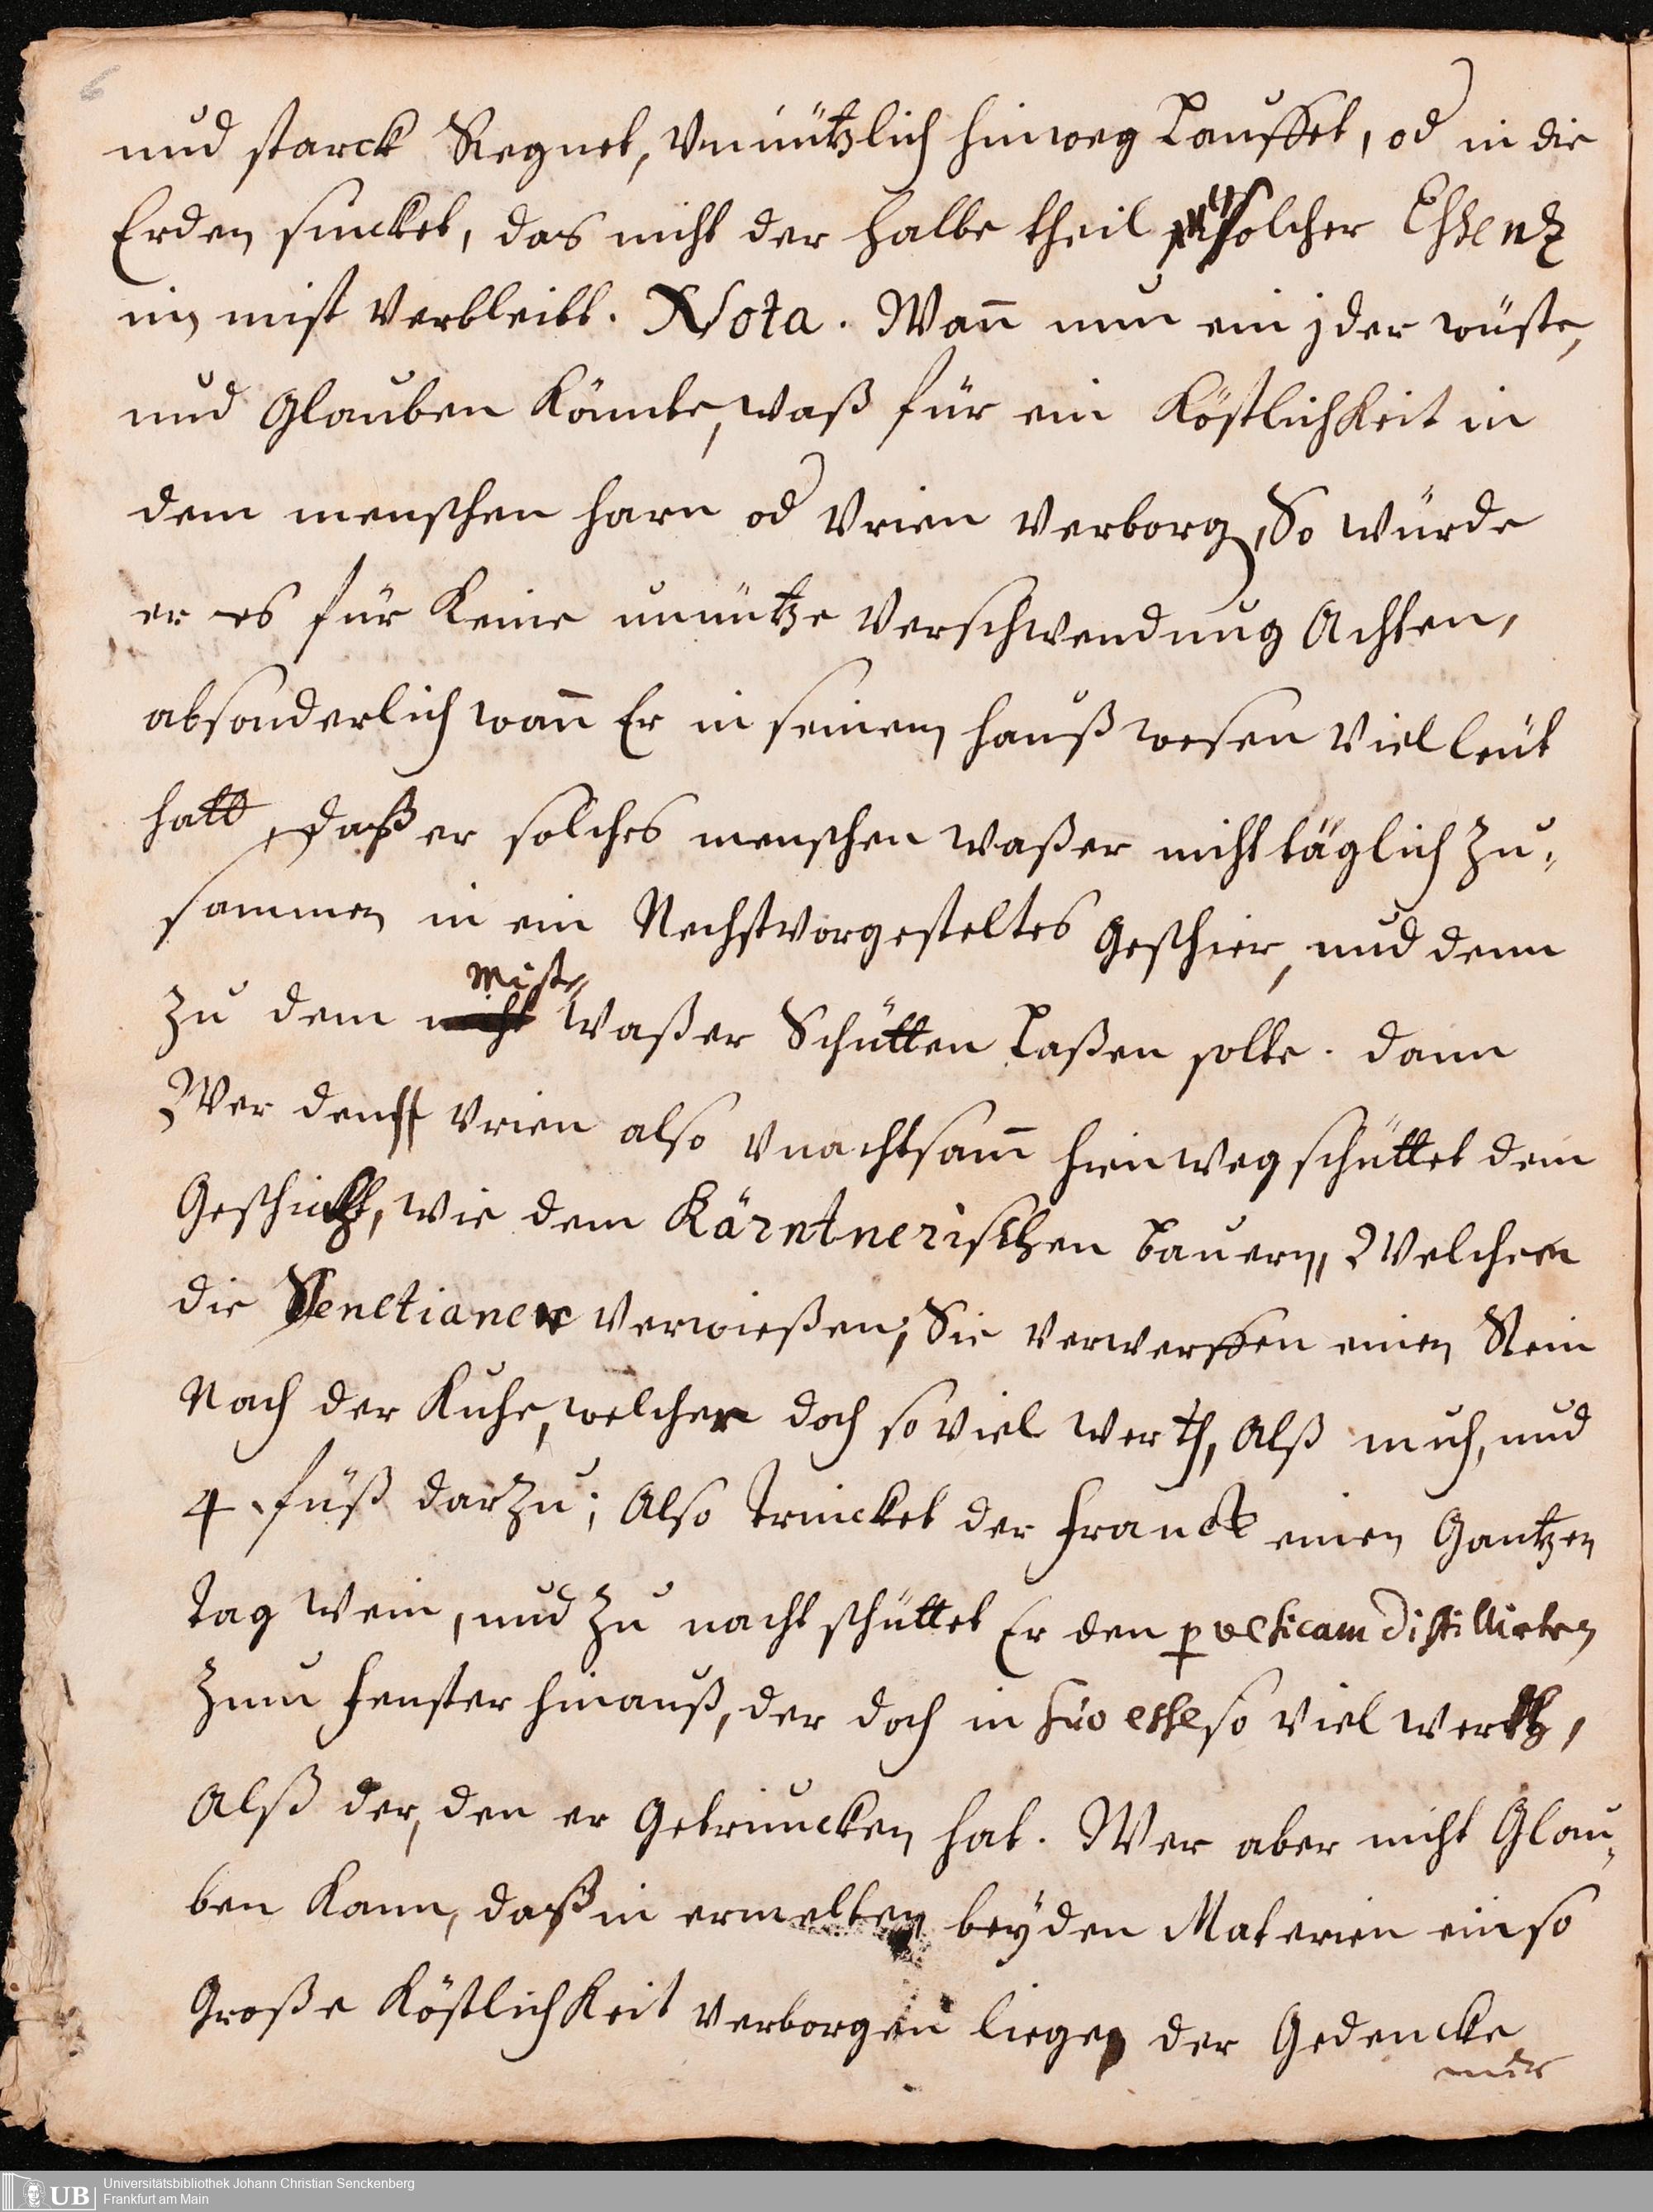 6
und starck Regnet, Vnnützlich hinweg Lauffet, od in die
Erden sincket, das nicht der halbe theil solcher Essentz
im mist Verbleibt. Nota. Wañ nun ein jder wüste,
und Glauben Könnte, waß für ein Köstlichkeit in
dem menschen harn od Vrien Verborg, So würde
er es für Keine unnütze Verschwendung Achten,
absonderlich wañ Er in seinem hauß wesen Viel leüt
hatt, daß er solches menschen waßer nicht täglich Zu,
sammen in ein Nechstvorgesteltes Geschier, und denn
Mist,
Zu dem nicht waßer Schütten Laßen solte. dann
Wer den Vrien also Vnachtsam̄ hienweg schüttet dem
Geschicht, wie dem Kärntnerischen bauern, Welchem
die Venetianer Verwießen, Sie Verwerffen einen Stein
Nach der Kuhe, welcher doch so viel werth, Alß muh, und
4 füß darzu; Also Trincket der Franck einen Gantzen
Tag Wein, und Zu nacht schüttet Er den p vesicam Distillirten
Zum Fenster hinauß, der doch in suo esse so Viel werth,
Alß der, den er Getruncken hat. Wer aber nicht Glau,
ben Kann, daß in ermelten beyden Materien ein so
Große Köstlichkeit Verborgen liege, der Gedencke
nur
UB
Universitätsbibliothek Johann Christian Senckenberg
Frankfurt am Main